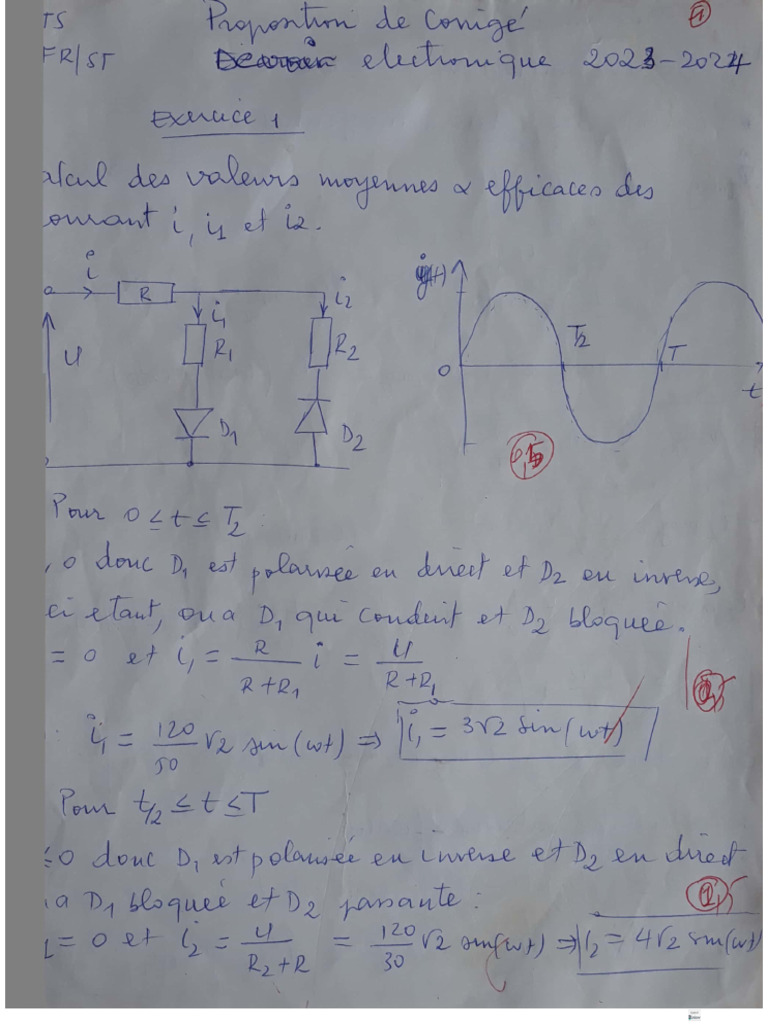 TS Proposition de Corrigé 1
FR/ST electronique 2023-2024
Exercice 1
alcul des valeurs moyennes & efficaces des
courant i, i1 et i2.
i R i1 R1 D1 i2 R2 D2 u
0 T/2 T t
Pour 0 ≤ t ≤ T/2
, 0 donc D1 est polarisée en direct et D2 en inverse,
ci etant, on a D1 qui conduit et D2 bloqueé.
= 0 et i1 = R/(R+R1) i = U/(R+R1)
i1 = 120/50 √2 sin(wt) ⇒ i1 = 3√2 sin(wt)
Pour t/2 ≤ t ≤ T
≤0 donc D1 est polarisée en inverse et D2 en direct
a D1 bloqueé et D2 passante :
1 = 0 et i2 = U/(R2+R) = 120/30 √2 sin(wt) ⇒ i2 = 4√2 sin(wt)